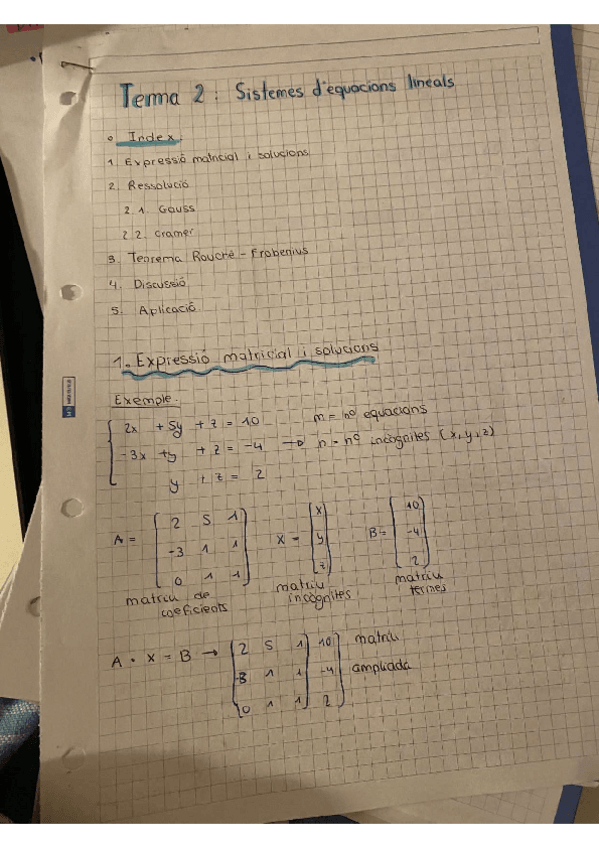 Tema 2: Sistemes d'equacions lineals
• Index:
1. Expressió matricial i solucions
2. Ressolució
2.1. Gauss
2.2. Cramer
3. Teorema Rouché - Frobenius
4. Discussió
5. Aplicació
1. Expressió matricial i solucions
Exemple:
2x + 5y + z = 10 m = nº equacions
-3x + y + z = -4 → n = nº incògnites (x, y, z)
y + z = 2
A = [2 5 1 X = [x B = [10
-3 1 1 y -4
0 1 1] z] 2]
matriu de coeficients matriu incògnites matriu termes
A · X = B → [2 5 1 | 10 matriu
-3 1 1 | -4 ampliada
0 1 1 | 2]